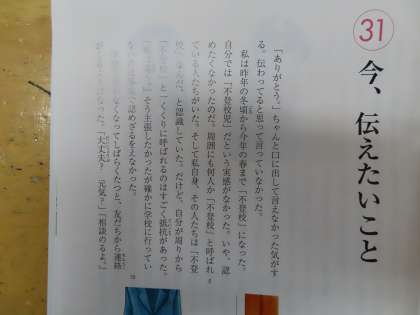 31
今、伝えたいこと
「ありがとう。」ちゃんと口に出して言えなかった気がす
る。伝わってると思って言っていなかった。
私は昨年の冬頃から今年の春まで「不登校」になった。
自分では「不登校児」だという実感がなかった。いや、認
めたくなかったのだ。周囲にも何人か「不登校」と呼ばれ
ている人たちがいた。そして私自身、その人たちは「不登
校」なんだ、と認識していた。だけど、自分が周りから
「不登校」と一くくりに呼ばれるのはすごく抵抗があった。
そう主張したかったが確かに学校に行ってい
認めざるをえなかった。
なくなってしばらくたつと、友だちから連絡
なった。「大丈夫？ 元気？」「相談のるよ。」